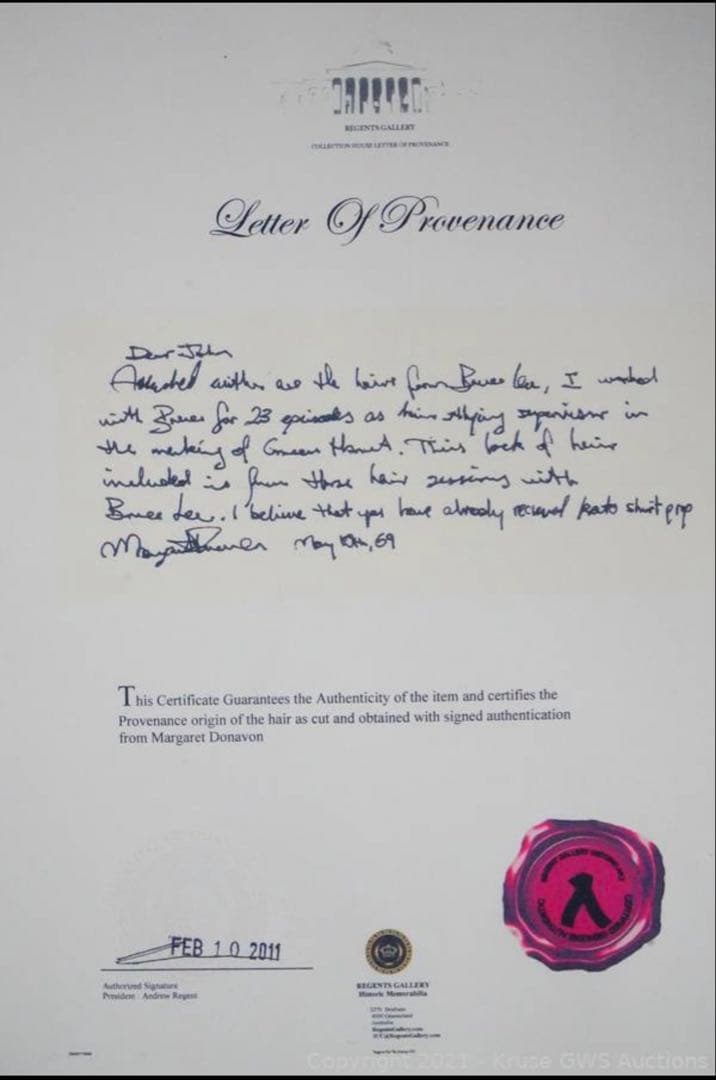 REGENTS GALLERY
COLLECTION HOUSE LETTER OF PROVENANCE
Letter Of Provenance
Dear John
Attached are the hairs from Bruce Lee, I worked
with Bruce for 23 episodes as hair styling supervisor in
the making of Green Hornet. This lock of hair
included is from those hair sessions with
Bruce Lee. I believe that you have already received kato shirt prop
May 10th, 69
This Certificate Guarantees the Authenticity of the item and certifies the
Provenance origin of the hair as cut and obtained with signed authentication
from Margaret Donavon
FEB 10 2011
Authorized Signature
President: Andrew Regent
REGENTS GALLERY
Historic Memorabilia
Australia
RegentsGallery.com
Copyright 2021 - Kruse GWS Auctions